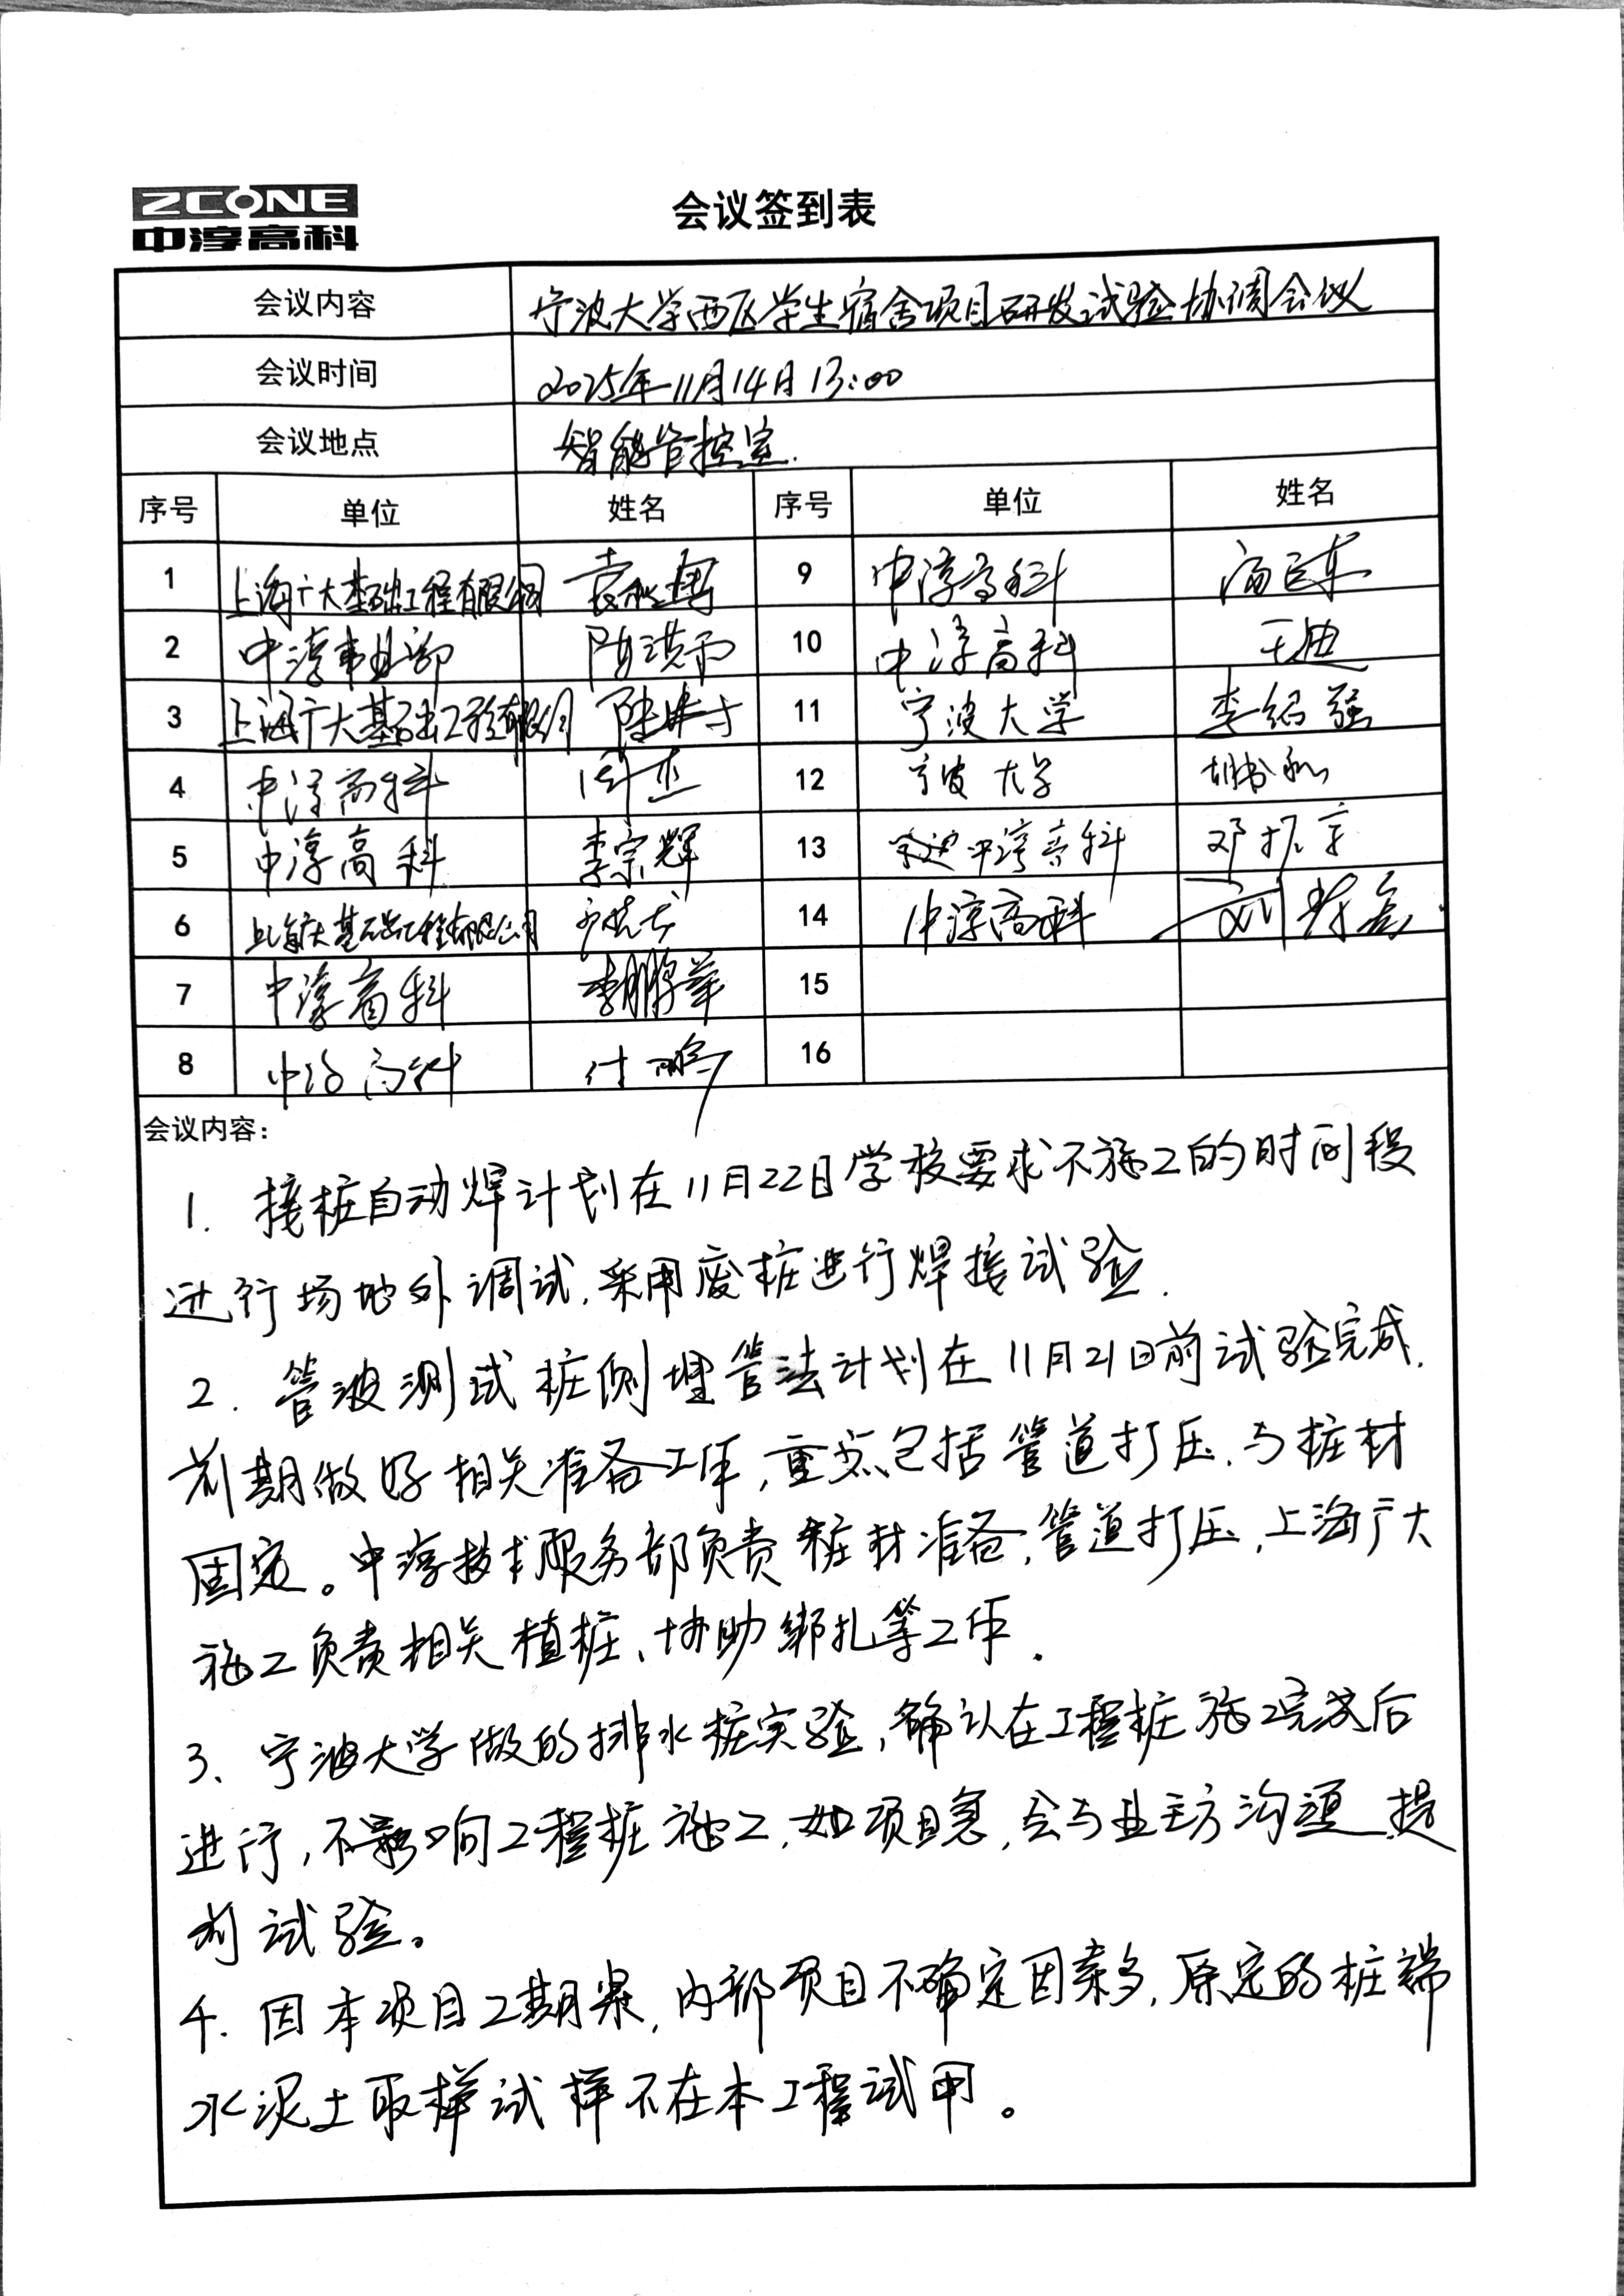 ZCONE
中淳高科
会议签到表
会议内容 宁波大学西区学生宿舍项目研发试验协调会议
会议时间 2025年11月14日13:00
会议地点 智能管控室.
序号 单位 姓名 序号 单位 姓名
1 上海广大基础工程有限公司 9 中淳高科
2 中淳事业部 10 中淳高科 王迪
3 上海广大基础工程有限公司 11 宁波大学 李绍强
4 中淳高科 周杰 12 宁波大学
5 中淳高科 李宗辉 13 中淳高科 邓振宇
6 上海广大基础工程有限公司 14 中淳高科
7 中淳高科 15
8 中淳高科 付鹏 16
会议内容：
1. 接桩自动焊计划在11月22日学校要求不施工的时间段
进行场地外调试,采用废桩进行焊接试验.
2. 管波测试桩侧埋管法计划在11月21日前试验完成.
前期做好相关准备工作,重点包括管道打压、与桩材
固定。中淳技术服务部负责桩材准备,管道打压,上海广大
施工负责相关植桩、协助绑扎等工作.
3、宁波大学做的排水桩实验,确认在工程桩施工完成后
进行,不影响工程桩施工,如项目急,会与业主方沟通提
前试验。
4. 因本项目工期紧,内部项目不确定因素多,原定的桩端
水泥土取样试样不在本工程试用。